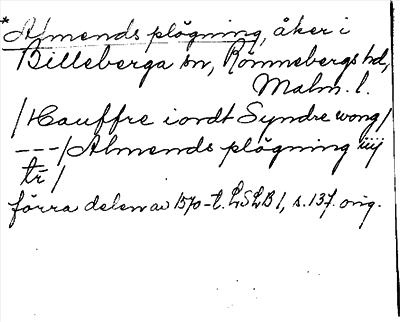 *Almends plögning, åker i
Billeberga sn, Rönnebergs hd,
Malm. l.
/Hauffre iordt Syndre wong/
---/Almends plögning iiij
tr/
förra delen av 1570-t. LSLB 1, s. 137. orig.